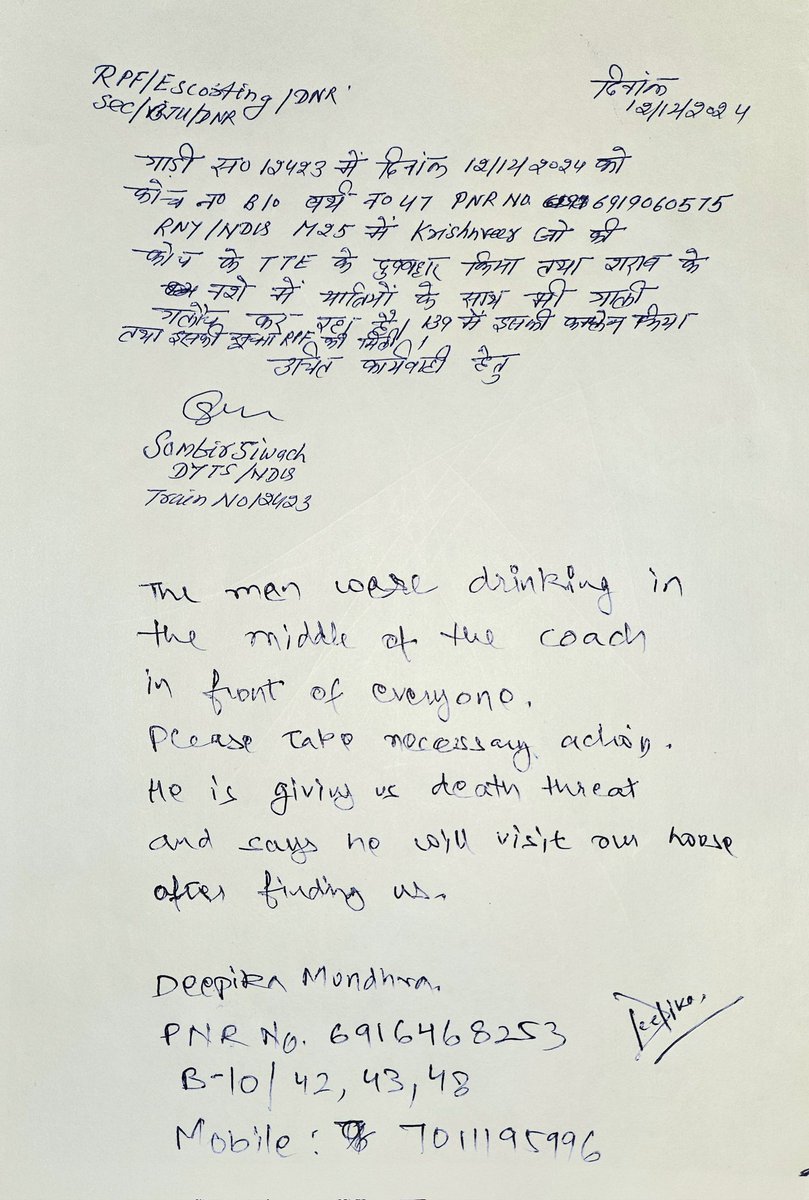 RPF/Escorting/DNR
दिनांक
Sec/BTU/DNR
12/12/2024
गाड़ी स० 12423 में दिनांक 12/12/2024 को
कोच न० B10 बर्थ न० 47 PNR NO. 6919060575
RNY/NDLS M25 में Krishnveer जो की
कोच के TTE के दुव्यवहार किया तथा शराब के
नशे में यात्रियों के साथ भी गाली
गलौच कर रहा है। 139 में इसकी कम्प्लेन किया
तथा इसकी सूचना RPF को मिली।
उचित कार्यवाही हेतु
Sombir Siwach
DYTS/NDLS
Train No 12423
The men were drinking in
the middle of the coach
in front of everyone.
Please take necessary action.
He is giving us death threat
and says he will visit our house
after finding us.
Deepika Mundhra.
Deepika.
PNR No. 6916468253
B-10/ 42, 43, 48
Mobile: 7011195996